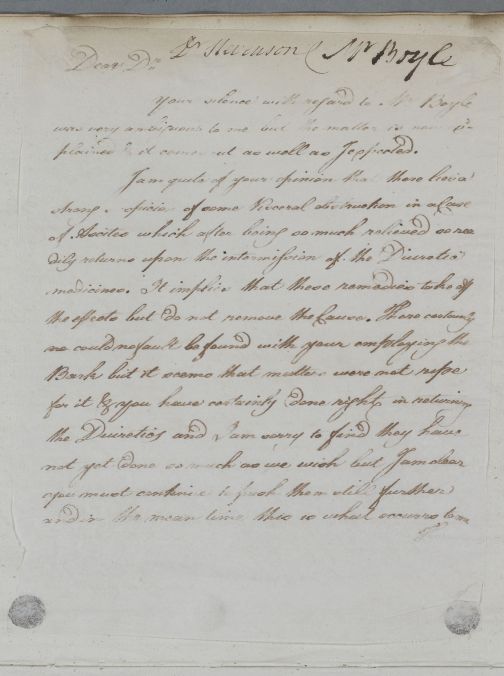 Dr Stevenson (Mr Boyle
Dear Dr
Your silence with regard to Mr Boyle
was very ambiguous to me but the matter is now ex-
plained & it comes out as well as I expected.
I am quite of your opinion that there lies a
strong suspicion of some Visceral obstruction in a Case
of Ascites which after being so much relieved so rea
dily returns upon the intermission of the Diuretic
medicines. It implies that these remedies take off
the effects but do not remove the Cause. There certainly
no could no fault be found with your employing the
Bark but it seems that matters were not ripe
for it & you have certainly done right in returning
the Diuretics and I am sorry to find they have
not yet done so much as we wish but I am clear
you must continue to push them still further
and in the mean time this is what occurrs to me